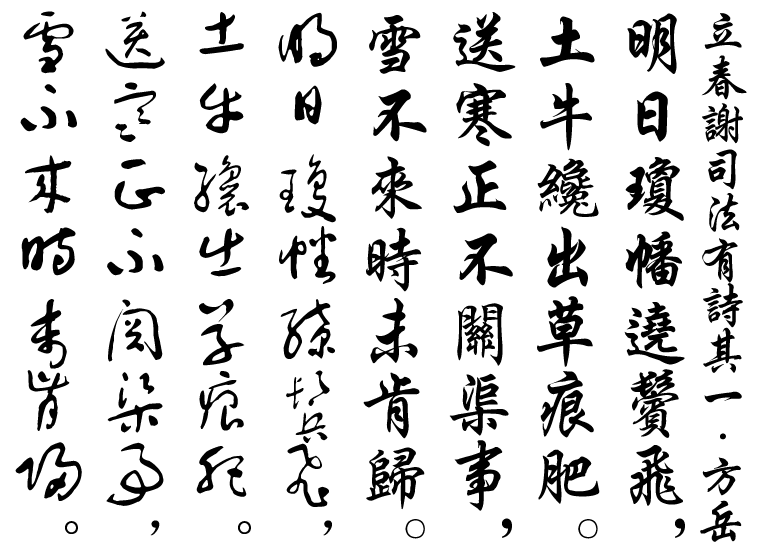 立春謝司法有詩其一．方岳
明日瓊幡遶鬢飛，
土牛纔出草痕肥。
送寒正不關渠事，
雪不來時未肯歸。
明日瓊幡繞鬢飛，
土牛纔出草痕肥。
送寒正不關渠事，
雪不來時未肯歸。